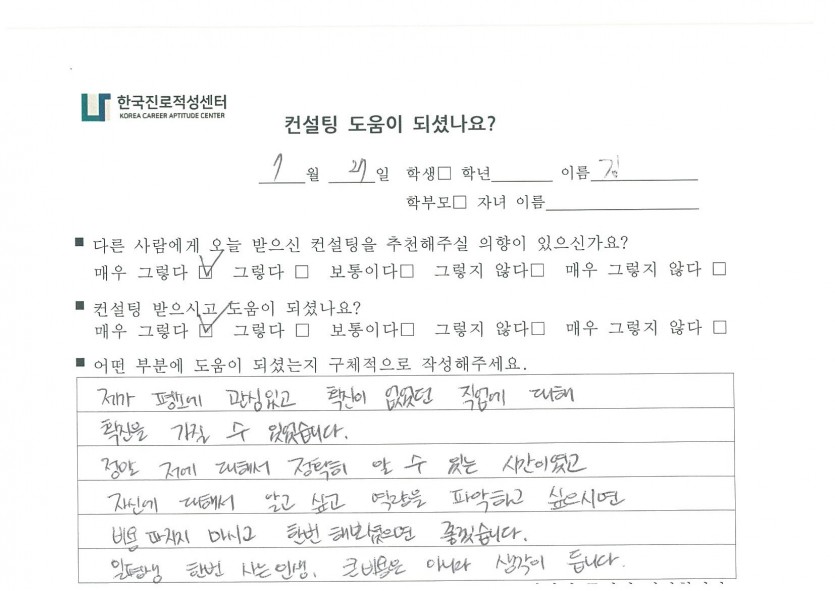 한국진로적성센터
KOREA CAREER APTITUDE CENTER
컨설팅 도움이 되셨나요?
7월 27일 학생□ 학년 이름 김
학부모□ 자녀 이름
■ 다른 사람에게 오늘 받으신 컨설팅을 추천해주실 의향이 있으신가요?
매우 그렇다 ☑ 그렇다 □ 보통이다□ 그렇지 않다□ 매우 그렇지 않다 □
■ 컨설팅 받으시고 도움이 되셨나요?
매우 그렇다 ☑ 그렇다 □ 보통이다□ 그렇지 않다□ 매우 그렇지 않다 □
■ 어떤 부분에 도움이 되셨는지 구체적으로 작성해주세요.
제가 평소에 관심있고 확신이 없었던 직업에 대해
확신을 가질 수 있었습니다.
정말 저에 대해서 정확히 알 수 있는 시간이였고
자신에 대해서 알고 싶고 역량을 파악하고 싶으시면
비용 따지지 마시고 한번 해보셨으면 좋겠습니다.
일평생 한번 사는 인생, 큰 비용은 아니라 생각이 듭니다.